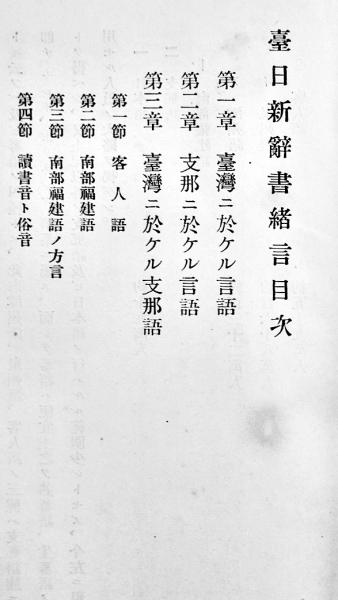 臺日新辭書緒言目次
第一章　臺灣ニ於ケル言語
第二章　支那ニ於ケル言語
第三章　臺灣ニ於ケル支那語
第一節　客人語
第二節　南部福建語
第三節　南部福建語ノ方言
第四節　讀書音ト俗音